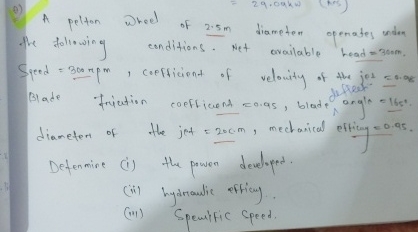 = 29.09kW (Ans)
Q) A pelton wheel of 2.5m diameter operates under
the following conditions. Net available head = 300m.
Speed = 300 rpm, coefficient of velocity of the jet = 0.98
Blade friction coefficient = 0.95, blade deflect angle = 165°.
diameter of the jet = 20cm, mechanical efficny = 0.95.
Determine (i) the power developed.
(ii) hydraulic efficny.
(iii) Specific speed.